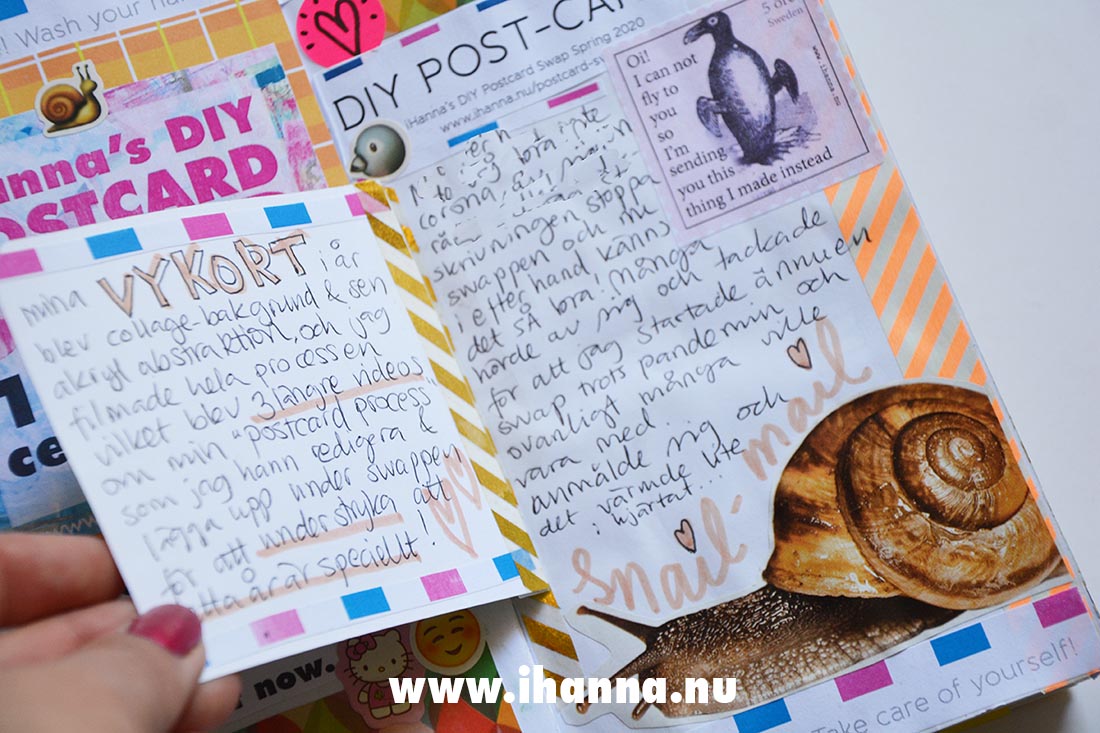 ! Wash your ha
anna's DIY
POSTCARD
ce
now.
mina VYKORT i år
blev collage-bakgrund & sen
akryl abstraktion, och jag
filmade hela processen
vilket blev 3 längre videos
om min "postcard process"
som jag hann redigera &
lägga upp under swappen
för att understryka att
tta år är speciellt!
DIY POST-CA
iHanna's DIY Postcard Swap Spring 2020
www.ihanna.nu/postcard-sw
bara inte
corona, av
skrivningen stoppa
swappen och nu
i efterhand känns
det SÅ bra! Många
hörde av sig och tackade
för att jag startade ännu en
swap trots pandemin och
ovanligt många ville
vara med och
anmälde sig
det värmde lite
i hjärtat...
snail-mail
5 öre
Sweden
www.ihanna.nu
Oi!
I can not
fly to
you
so
I'm
sending
you this
thing I made instead
Take care of yourself!
www.ihanna.nu